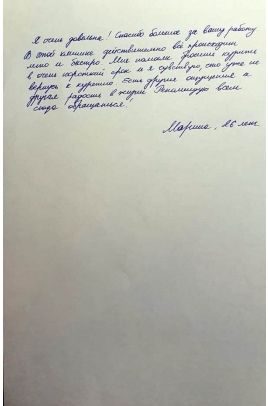 Я очень довольна! Спасибо большое за вашу работу
В этой клинике действительно всё происходит
легко и быстро. Мне помогли бросить курить
в очень короткий срок и я чувствую, что уже не
вернусь к курению. Есть другие ощущения и
другая радость в жизни. Рекомендую всем
сюда обращаться!
Марина, 26 лет